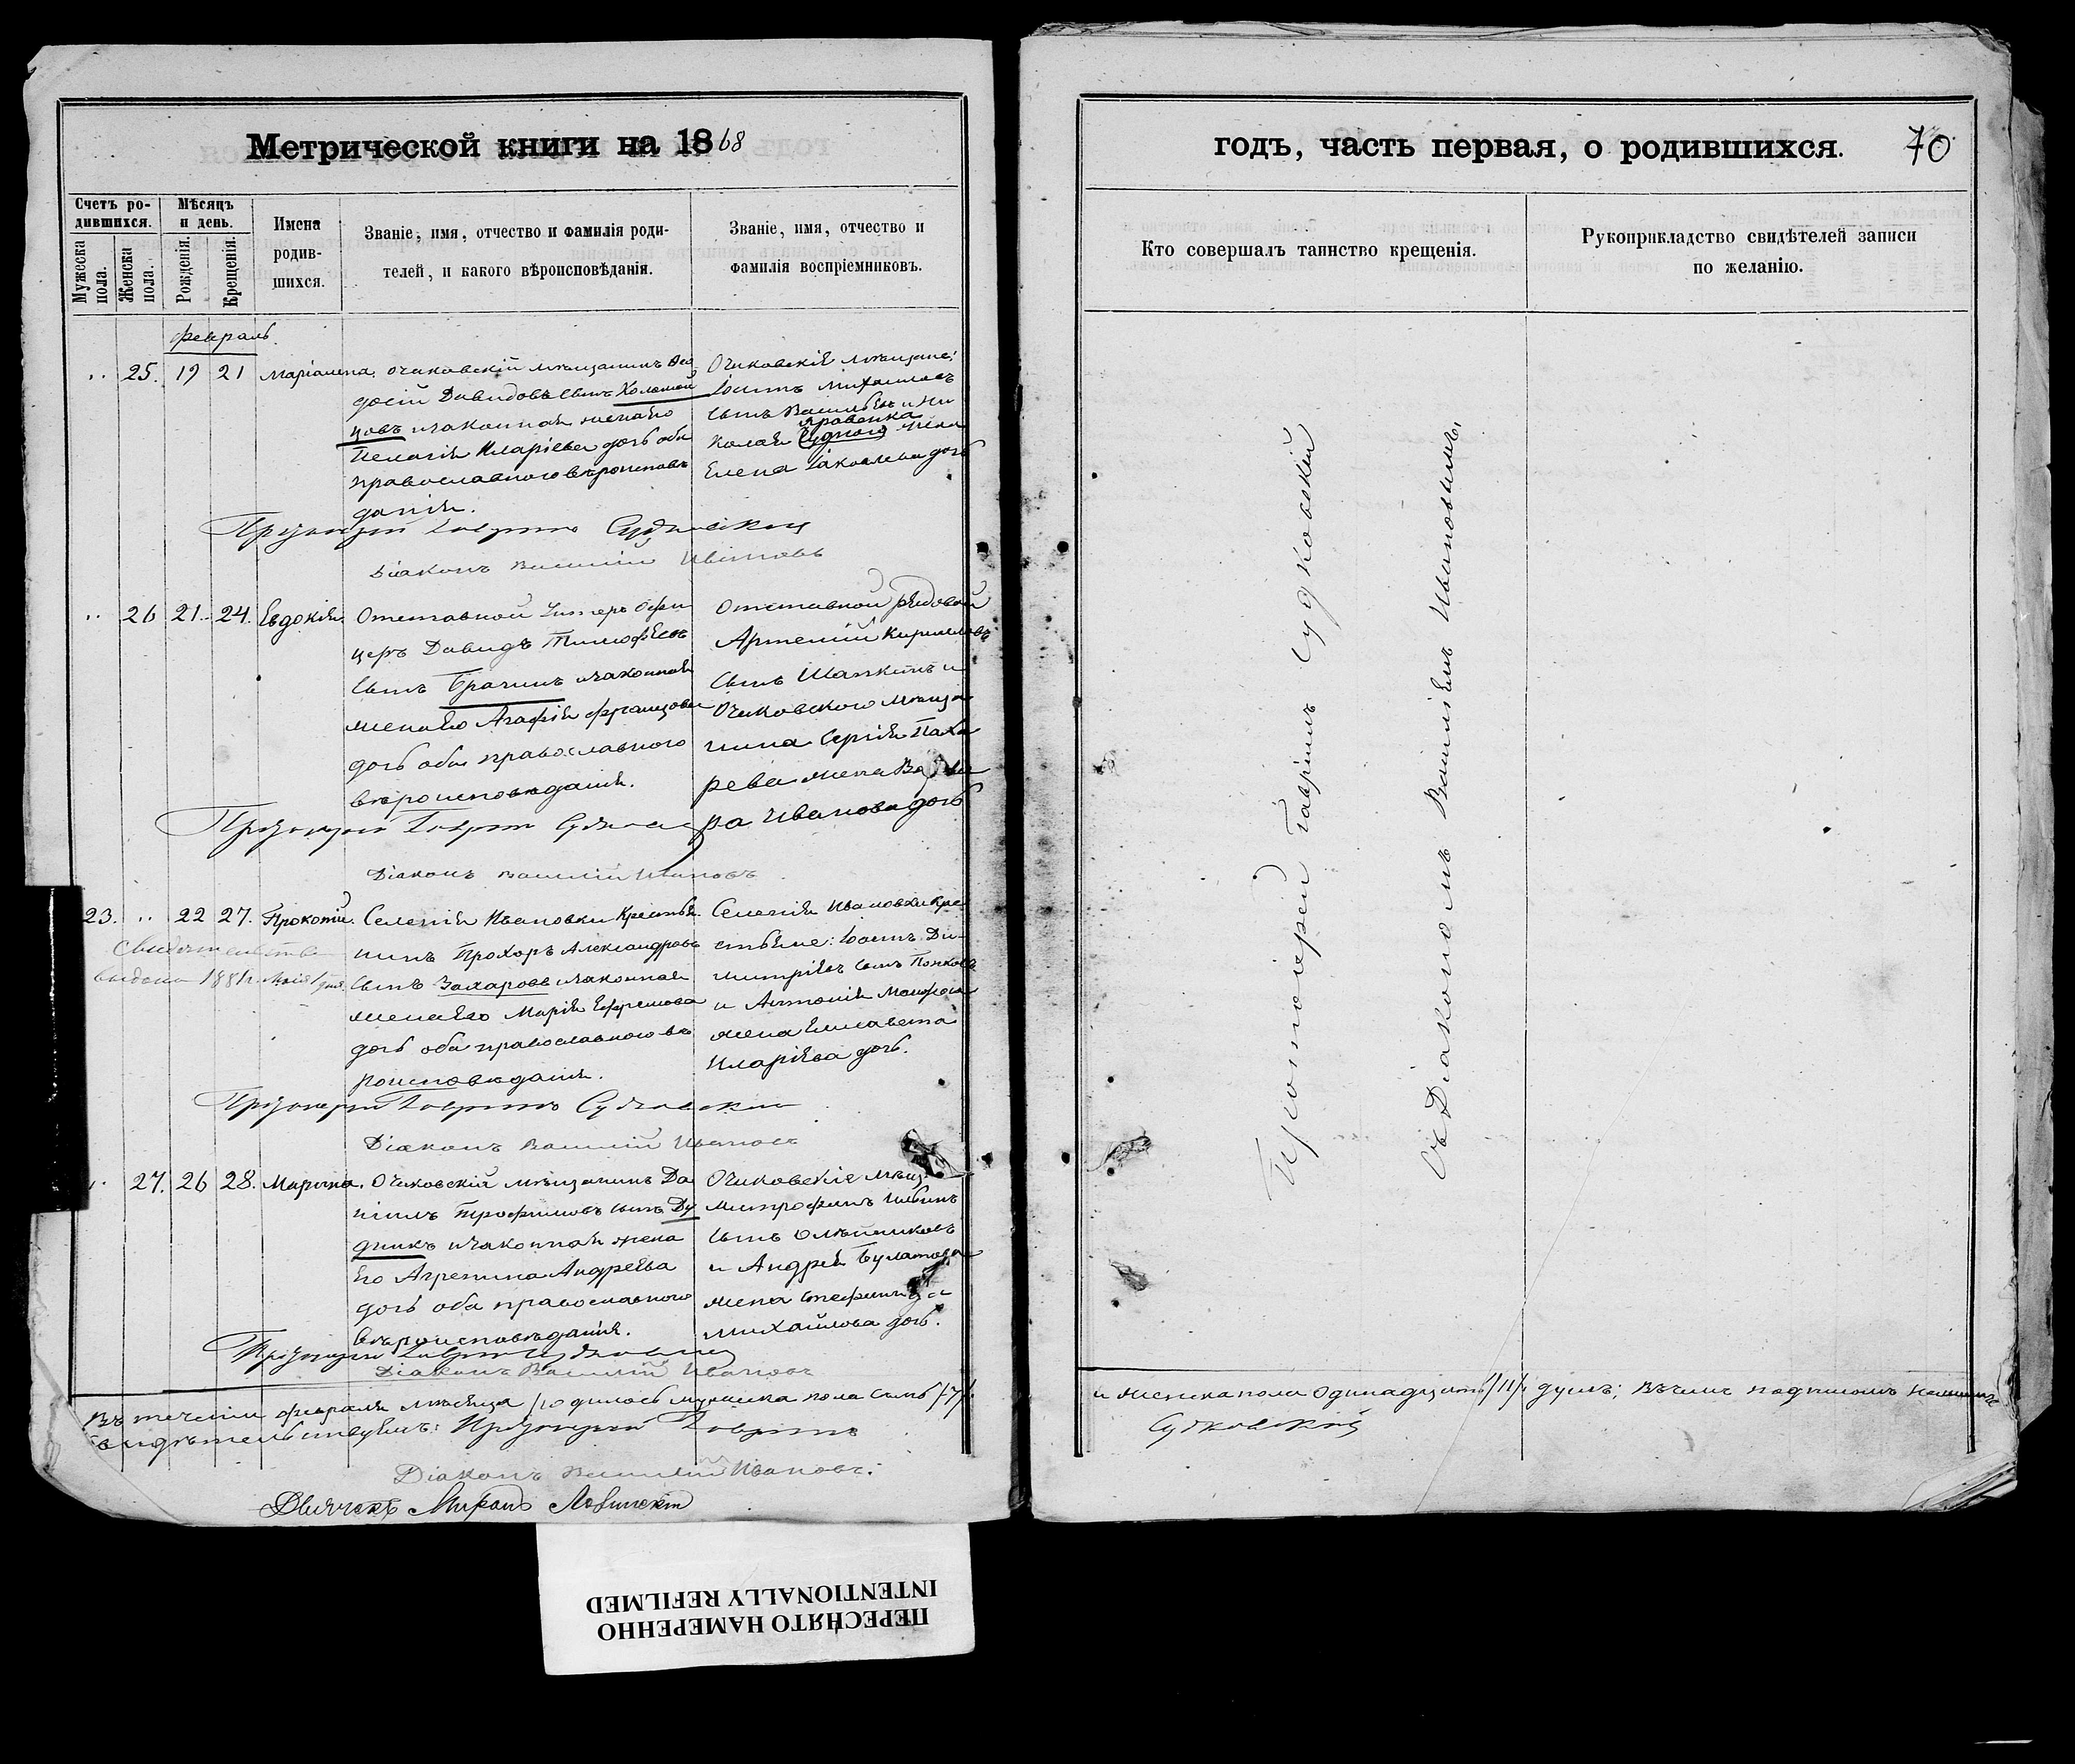 Метрической книги на 1868
Счетъ родившихся.
Мужеска пола.
Женска пола.
Мѣсяцъ и день.
Рожденія.
Крещенія.
Имена родившихся.
Званіе, имя, отчество и фамилія родителей, и какого вѣроисповѣданія.
Званіе, имя, отчество и фамилія воспріемниковъ.
февраль.
25. 19 21
очаковскій мѣщанинъ Ѳео
досій Давидовъ сынъ Коломой
цовъ и законная жена его
Пелагія Иларіева дочь оба
православного вѣроисповѣ
данія.
Очаковскія мѣщане:
Іоаннъ Михаиловъ
сынъ Васильевъ и Ни
колая
жена
Елена Іаковлева дочь
Протоіерей Гавріилъ Судковскій
Діаконъ Василій Ивановъ
26 21 24. Евдокія.
Отставной Унтеръ Офи
церъ Давидъ Тимофѣевъ
сынъ Брагинъ и законная
жена его Агафія Францова
дочь оба православного
вѣроисповѣданія.
Отставной рядовой
Артемій Кириловъ
сынъ Шапкинъ и
Очаковского мѣща
нина Сергія
рева жена Варва
ра Иванова дочь
Протоіерей Гавріилъ Судковскій
Діаконъ Василій Ивановъ
23. 22 27. Прокопій.
Свидетельство
выдано 1881 г.
Селенія Ивановки Крестья
нинъ Прохоръ Александровъ
сынъ Захаровъ и законная
жена его Марія Ефремова
дочь оба православного вѣ
роисповѣданія.
Селенія Ивановки Кре
стьяне: Іоаннъ Ди
митріевъ сынъ Попковъ
и Антонія
жена Елисавета
Иларіева дочь.
Протоіерей Гавріилъ Судковскій
Діаконъ Василій Ивановъ
27. 26 28. Марина.
Очаковскій мѣщанинъ Да
ніилъ Трофимовъ сынъ Ду
дникъ и законная жена
его Агрепина Андреева
дочь оба православного
вѣроисповѣданія.
Очаковскіе мѣщ:
Митрофанъ
сынъ Олѣйниковъ
и Андрея Булатова
жена Стефанида
Михайлова дочь.
Протоіерей Гавріилъ Судковскій
Діаконъ Василій Ивановъ
Въ теченіи февраля мѣсяца родилось мужеска пола семь /7/
свидѣтельствуемъ: Протоіерей Гавріилъ
Діаконъ Василій Ивановъ.
годъ, часть первая, о родившихся.
70
Кто совершалъ таинство крещенія.
Рукоприкладство свидѣтелей записи по желанію.
Протоіерей Гавріилъ Судковскій
съ Діакономъ Василіемъ Ивановымъ.
и женска пола одинадцать /11/ душъ; въ чемъ подписомъ нашимъ
Судковскій
ПЕРЕСНЯТО НАМЕРЕННО
INTENTIONALLY REFILMED